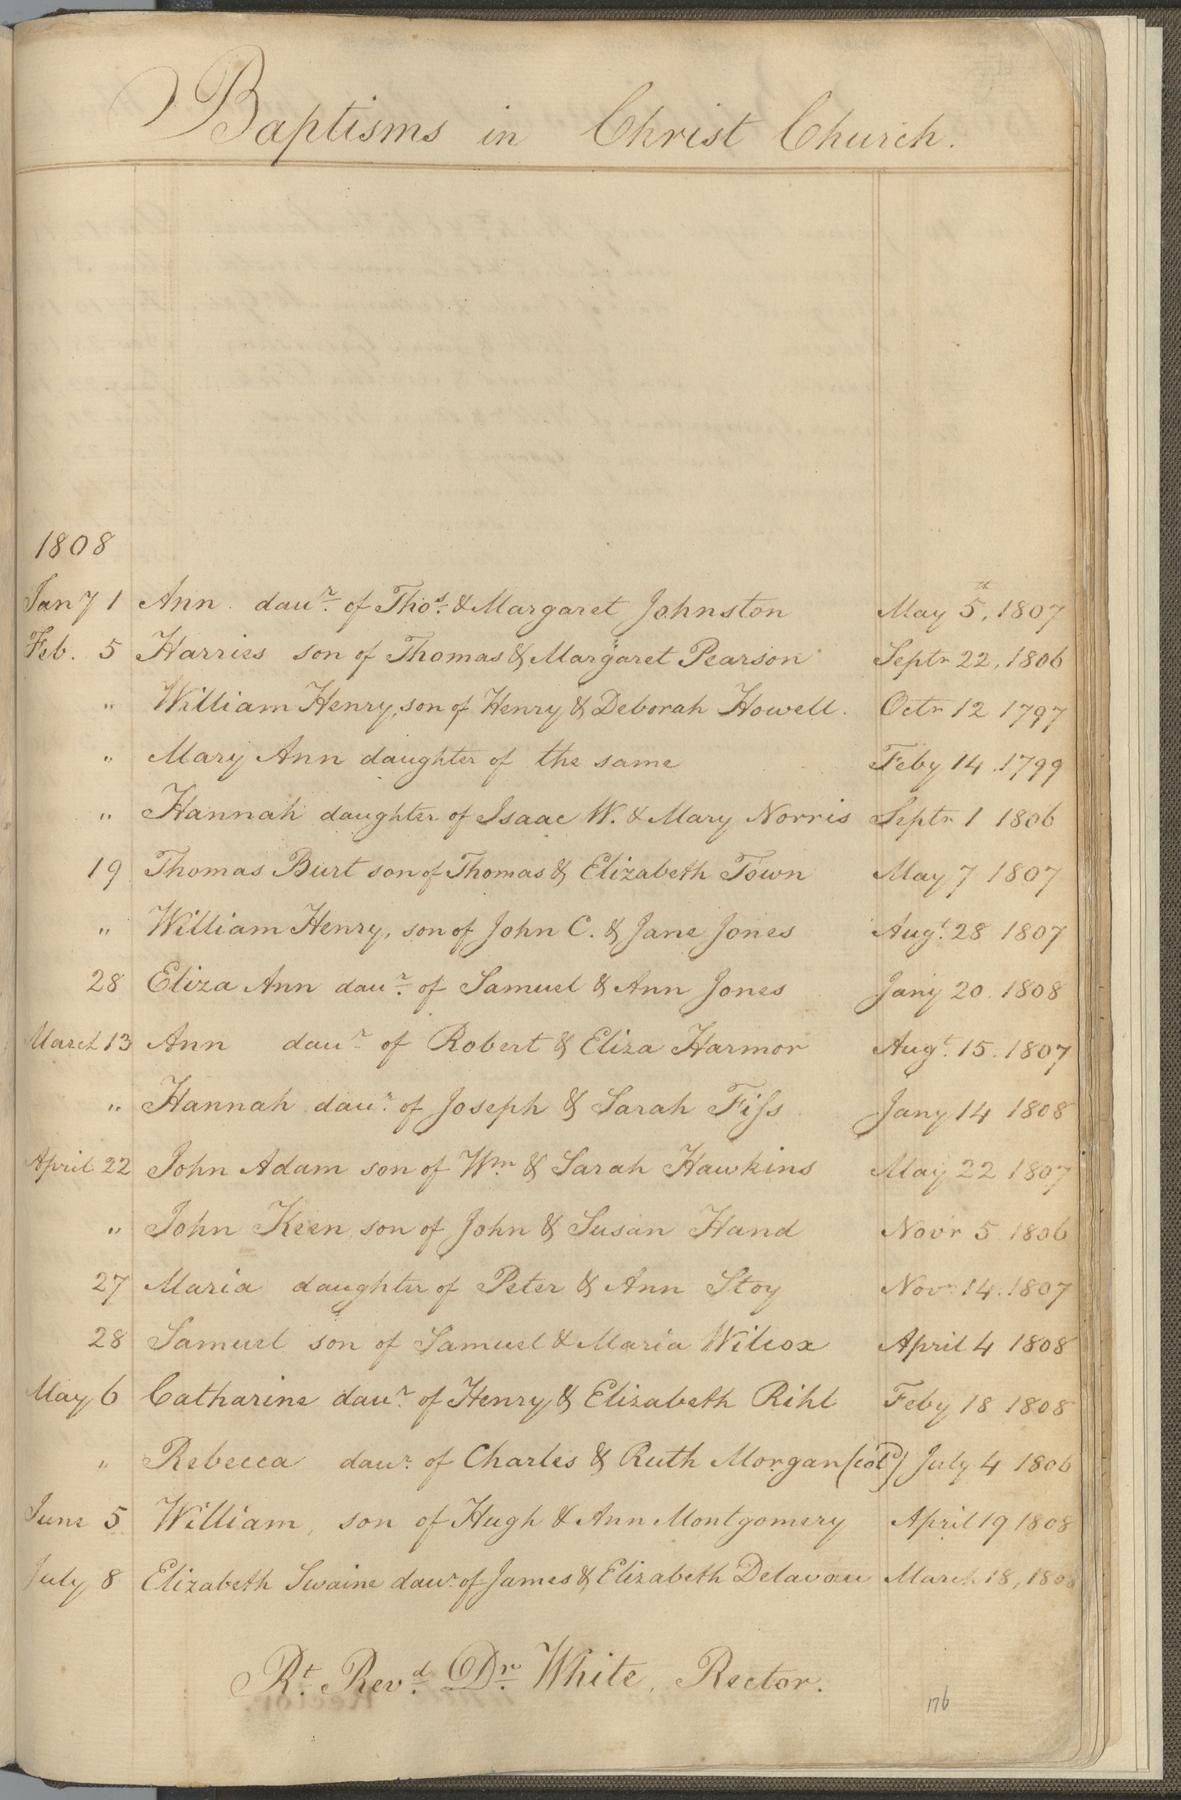 Baptisms in Christ Church.
1808
Jany 1 Ann daur. of Thos. & Margaret Johnston May 5th, 1807
Feb. 5 Harries son of Thomas & Margaret Pearson Septr 22, 1806
" William Henry, son of Henry & Deborah Howell. Octr 12 1797
" Mary Ann daughter of the same Feby 14. 1799
" Hannah daughter of Isaac W. & Mary Norris Septr 1 1806
19 Thomas Burt son of Thomas & Elizabeth Town May 7 1807
" William Henry, son of John C. & Jane Jones Augt. 28 1807
28 Eliza Ann daur. of Samuel & Ann Jones Jany 20. 1808
March 13 Ann daur. of Robert & Eliza Harmor Augt. 15. 1807
" Hannah daur. of Joseph & Sarah Fiſs Jany 14 1808
April 22 John Adam son of Wm. & Sarah Hawkins May 22 1807
" John Keen, son of John & Susan Hand Novr 5 1806
27 Maria daughter of Peter & Ann Stoy Novr 14. 1807
28 Samuel son of Samuel & Maria Wilcox April 4 1808
May 6 Catharine daur. of Henry & Elizabeth Rihl Feby 18 1808
" Rebecca daur. of Charles & Ruth Morgan (cold) July 4 1806
June 5 William, son of Hugh & Ann Montgomery April 19 1808
July 8 Elizabeth Swaine daur. of James & Elizabeth Delavau March 18, 1808
Rt. Revd. Dr. White, Rector.
176